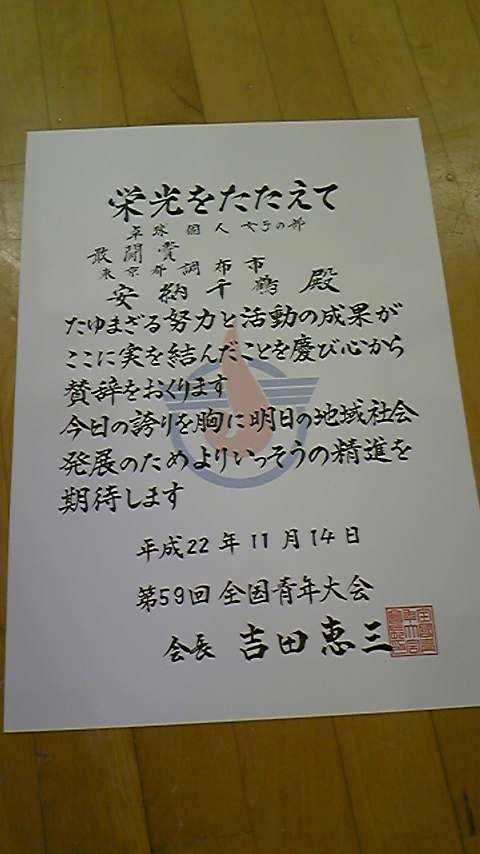 栄光をたたえて
卓球 個人 女子の部
敢闘賞
東京都調布市
安納千鶴 殿
たゆまざる努力と活動の成果が
ここに実を結んだことを慶び心から
賛辞をおくります
今日の誇りを胸に明日の地域社会
発展のためよりいっそうの精進を
期待します
平成22年11月14日
第59回 全国青年大会
会長 吉田恵三